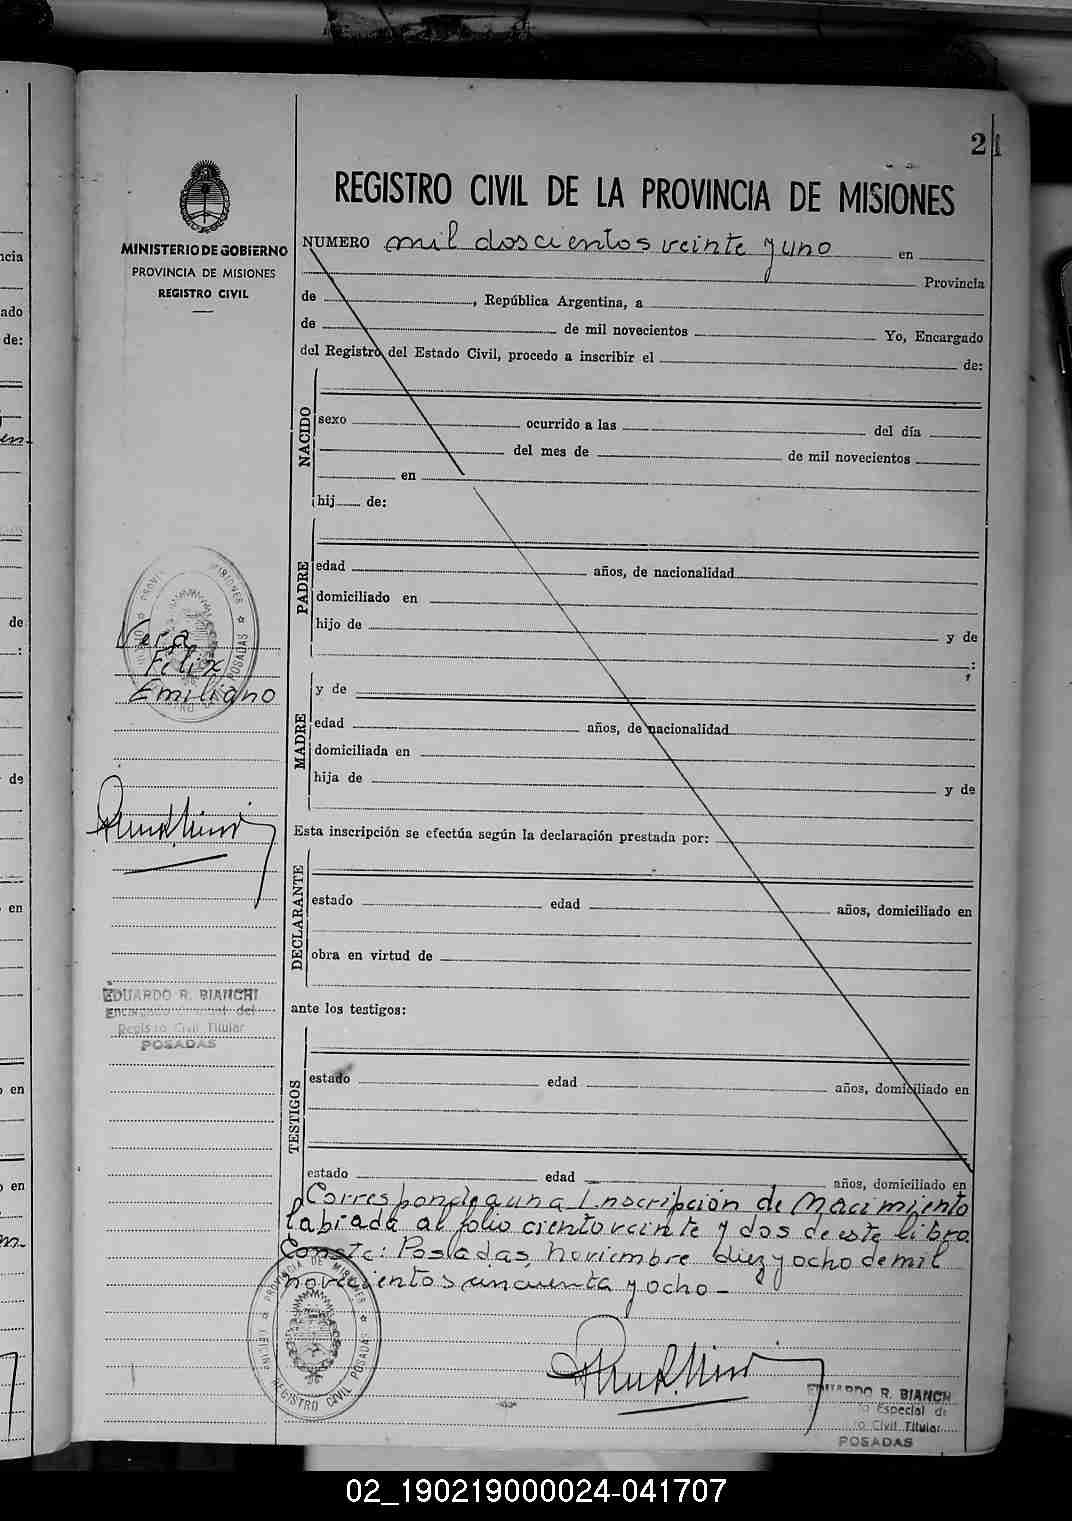 21
REGISTRO CIVIL DE LA PROVINCIA DE MISIONES
MINISTERIO DE GOBIERNO
PROVINCIA DE MISIONES
REGISTRO CIVIL
NUMERO mil doscientos veinte y uno en
Provincia
de , República Argentina, a
de de mil novecientos Yo, Encargado
del Registro del Estado Civil, procedo a inscribir el de:
NACIDO
sexo ocurrido a las del día
del mes de de mil novecientos
en
hij de:
PADRE
edad años, de nacionalidad
domiciliado en
hijo de y de
:
Vera
Felix
Emiliano
MADRE
y de
edad años, de nacionalidad
domiciliada en
hija de y de
Esta inscripción se efectúa según la declaración prestada por:
DECLARANTE
estado edad años, domiciliado en
obra en virtud de
EDUARDO R. BIANCHI
Registro Civil Titular
POSADAS
ante los testigos:
TESTIGOS
estado edad años, domiciliado en
estado edad años, domiciliado en
Corresponde a una Inscripción de Nacimiento
labrada al folio ciento veinte y dos de este libro.
Conste: Posadas, Noviembre diez y ocho de mil
novecientos cincuenta y ocho -
PROVINCIA DE MISIONES
OFICINA REGISTRO CIVIL POSADAS
EDUARDO R. BIANCHI
Especial de
Civil Titular
POSADAS
02_190219000024-041707